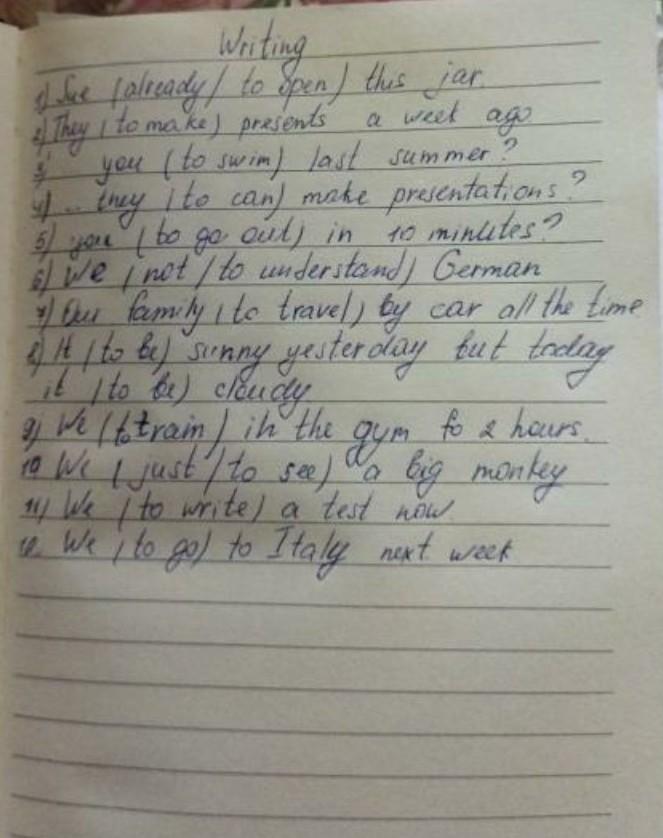 Writing
1) Sue (already / to open) this jar.
2) They (to make) presents a week ago
3) you (to swim) last summer?
4) .. they (to can) make presentations?
5) you (to go out) in 10 minutes?
6) We (not / to understand) German
7) Our family (to travel) by car all the time
8) It (to be) sunny yesterday but today
it (to be) cloudy
9) We (to train) in the gym fo 2 hours.
10 We (just / to see) a big monkey
11) We (to write) a test now.
12. We (to go) to Italy next week